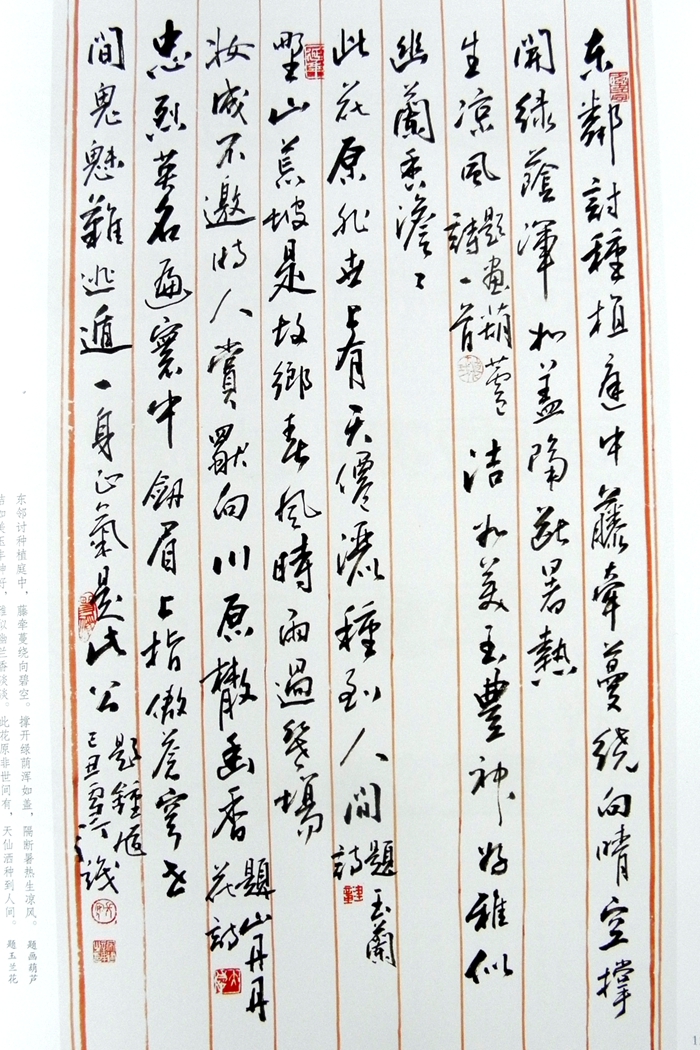 東鄰討種植庭中藤牽蔓繞向晴空撐
開綠蔭渾如蓋隔斷暑熱
生凉風題畫葫蘆詩一首潔如美玉豐神好雅似
幽蘭香澹澹
此花原非世上有天僊灑種到人間題玉蘭詩
野山荒坡是故鄉春風時雨過幾場
妝成不邀時人賞獻向川原散幽香題山丹丹花詩
忠烈英名遍寰中劍眉上指傲蒼穹世
間鬼魅難逃遁一身正氣是此公題鍾馗
己丑
东邻讨种植庭中，藤牵蔓绕向碧空。撑开绿荫浑如盖，隔断暑热生凉风。 题画葫芦
洁如美玉丰神好，雅似幽兰香淡淡。此花原非世间有，天仙洒种到人间。 题玉兰花
1